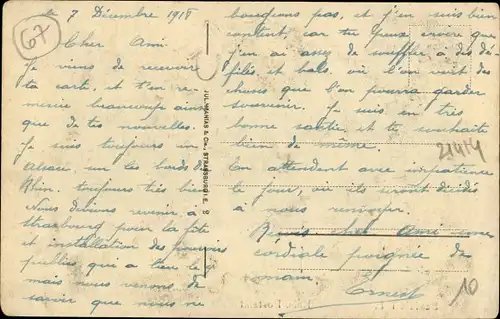 le 7 Décembre 1918
67
Cher Ami
Je viens de recevoir
ta carte, et t'en re-
mercie beaucoup ainsi
que de tes nouvelles.
Je suis toujours en
Alsace, sur les bords du
Rhin, toujours très bien
Nous devions revenir à
Strasbourg pour la fête
et installation des pouvoirs
publics qui a lieu le
mais nous venons de
savoir que nous ne
JUL. MANIAS & Cie., STRASBOURG I. E.
bougeons pas, et j'en suis bien
content, car tu peux croire que
j'en ai assez de souffler à des dé-
filés et bals, où l'on voit des
choses que l'on pourra garder
souvenir. Je suis en très
bonne santé et te souhaite
bien de même.
21414
En attendant avec impatience
le jour, où ils seront décidés
à nous renvoyer.
Reçois cher Ami une
cordiale poignée de
main.
Ernest
10